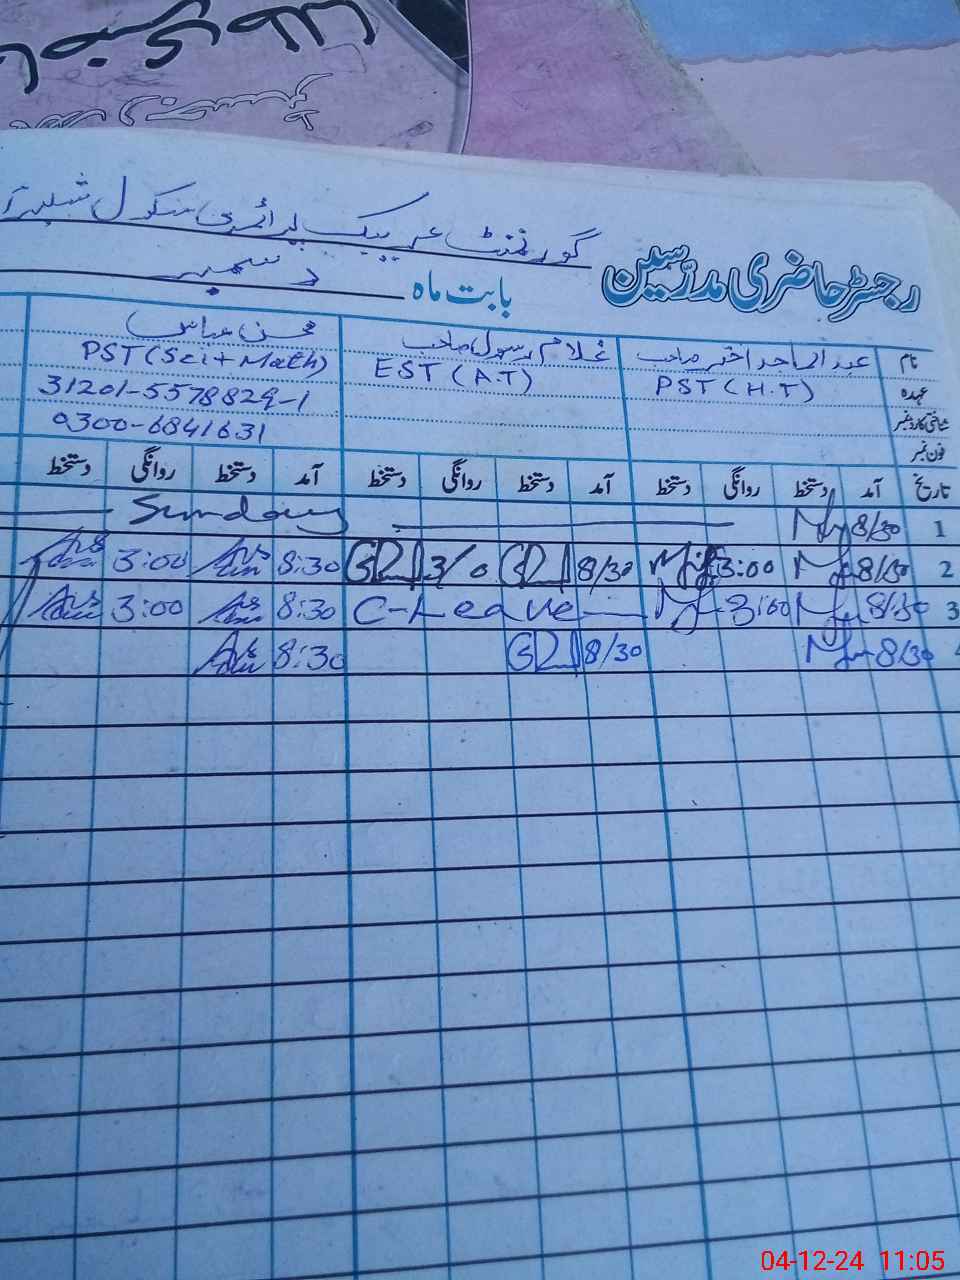 گورنمنٹ عربیک پرائمری سکول
رجسٹر حاضری مدرسین
بابت ماہ دسمبر
نام عبدالماجد اختر صاحب غلام رسول صاحب محسن عباس
عہدہ PST (H.T) EST (A.T) PST (Sci + Math)
شناختی کارڈ نمبر 31201-5578829-1
فون نمبر 0300-6841631
تاریخ آمد دستخط روانگی دستخط آمد دستخط روانگی دستخط آمد دستخط روانگی دستخط
1 8/30 Sunday
2 8/30 3:00 8/30 3/0 8:30 3:00
3 8/30 3:00 C-Leave 8:30 3:00
8/30 8/30 8:30
04-12-24 11:05